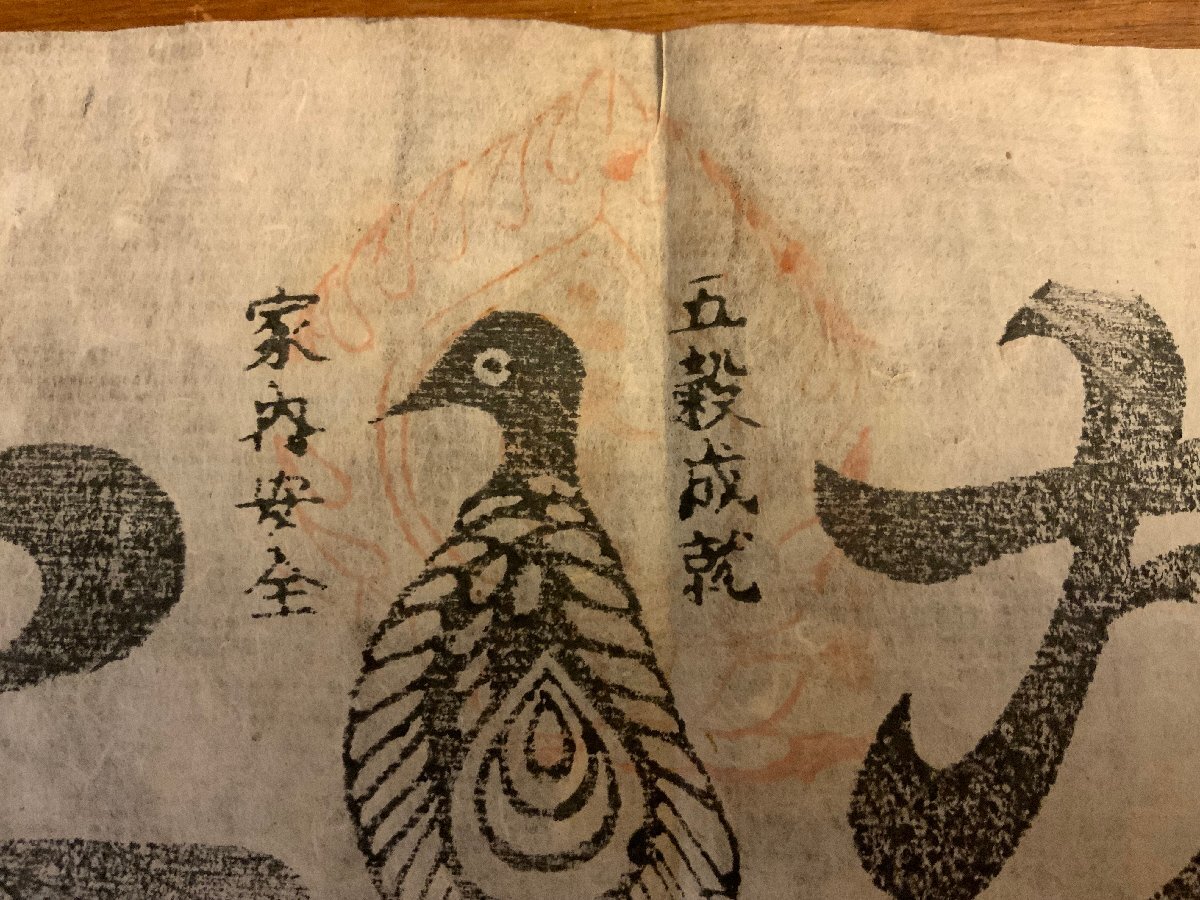 五穀成就
家内安全